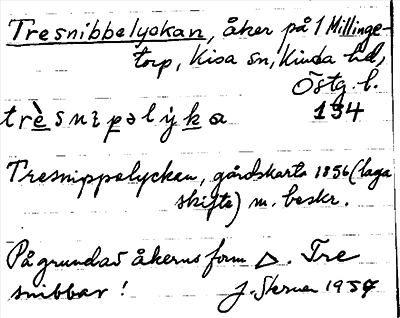 Tresnibbelyckan, åker på 1 Millinge-
torp, Kisa sn, Kinda hd,
Östg. l.
trèsnipəlyka 194
Tresnippelyckan, gårdskarta 1856 (laga
skifte) m. beskr.
På grund av åkerns form △. Tre
snibbar!
J. 1957